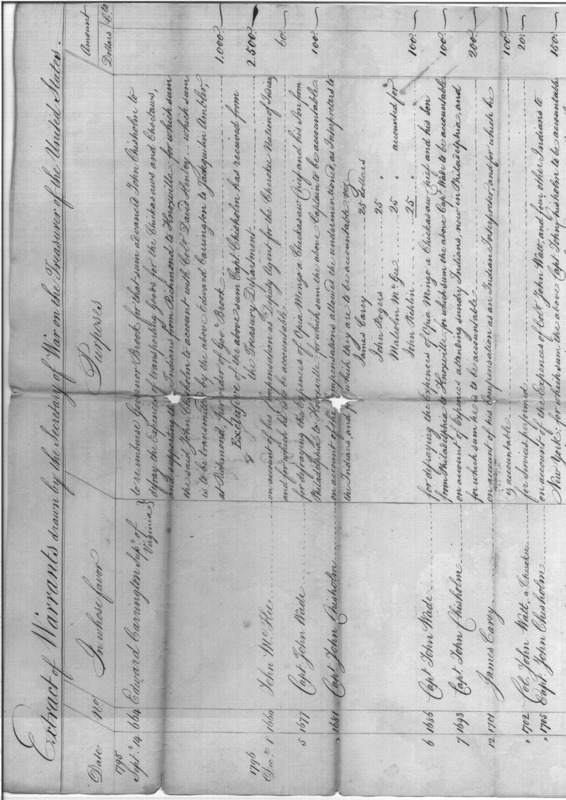 Extract of Warrants drawn by the Secretary of War on the Treasurer of the United States.
Date No. In whose favor Purposes Amount
Dollars Cts
1795
Sept. 14 664 Edward Carrington Supr. of Virginia
to reimburse Governor Brook for that sum advanced John Chisholm to
defray the Expences of transporting goods for the Chickasaws and Choctaws,
and supporting the Indians from Richmond to Knoxville for which sum
the said John Chisholm to account with Govr. David Henley which sum
is to be transmitted by the above Edward Carrington to Jacquelin Ambler,
at Richmond, per order of Gov. Brook 1.000
Exclusive of the above sum Capt. Chisholm has received from
the Treasury Department 2.500
1796
Decr. 1 1660 John McKee on account of his compensation as Deputy Agent for the Cherokee Nation of Indians
and for which he is to be accountable 60
5 1677 Capt. John Wade for defraying the Expences of Opia Mingo a Chickasaw Chief and his Son from
Philadelphia to Knoxville for which sum the above Captain to be accountable 100
" 1681 Capt. John Chisholm on account of the compensations allowed the undermentioned, as Interpreters to
the Indians, and for which they are to be accountable viz
James Carey 25 dollars
John Rogers 25 "
Malcolm McGee 25 " accounted for
John Pitchlin 25 " 100
6 1686 Capt. John Wade for defraying the Expences of Opia Mingo a Chickasaw Chief and his Son
from Philadelphia to Knoxville for which sum the above Capt. Wade to be accountable 100
7 1693 Capt. John Chisholm on account of expences attending sundry Indians, now in Philadelphia, and
for which sum he is to be accountable 200
12 1701 James Carey on account of his compensation as an Indian Interpreter, and for which he
is accountable 100
" 1702 Col. John Watt, a Cherokee for Services performed 20
" 1705 Capt. John Chisholm on account of the Expences of Col. John Watt, and four other Indians to
New York; for which sum the above Capt. John Chisholm to be accountable 150